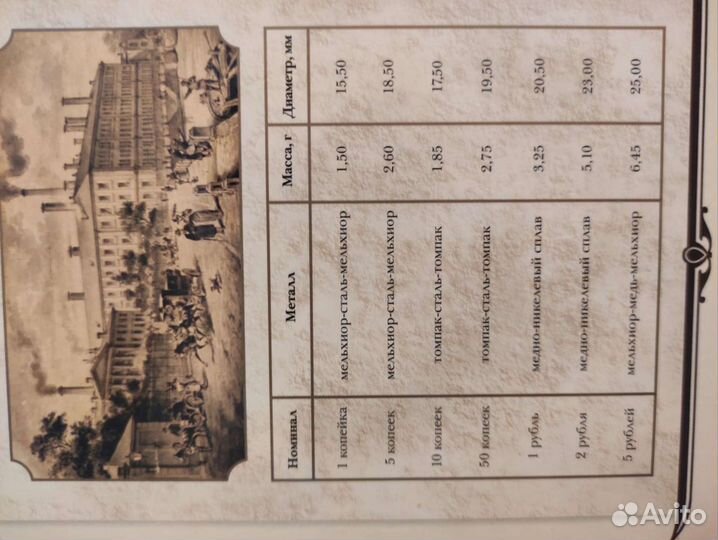 Номинал Металл Масса, г Диаметр, мм
1 копейка мельхиор-сталь-мельхиор 1,50 15,50
5 копеек мельхиор-сталь-мельхиор 2,60 18,50
10 копеек томпак-сталь-томпак 1,85 17,50
50 копеек томпак-сталь-томпак 2,75 19,50
1 рубль медно-никелевый сплав 3,25 20,50
2 рубля медно-никелевый сплав 5,10 23,00
5 рублей мельхиор-медь-мельхиор 6,45 25,00
Avito